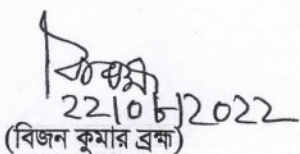 22/06/2022
(বিজন কুমার ব্রহ্ম)